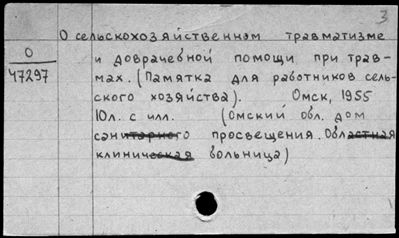 3
О сельскохозяйственном травматизме
О
47297
и доврачебной помощи при трав-
мах. (Памятка для работников сель-
ского хозяйства). Омск, 1955
10л. с илл. (Омский обл. дом
санитарного просвещения. Областная
клиническая больница)